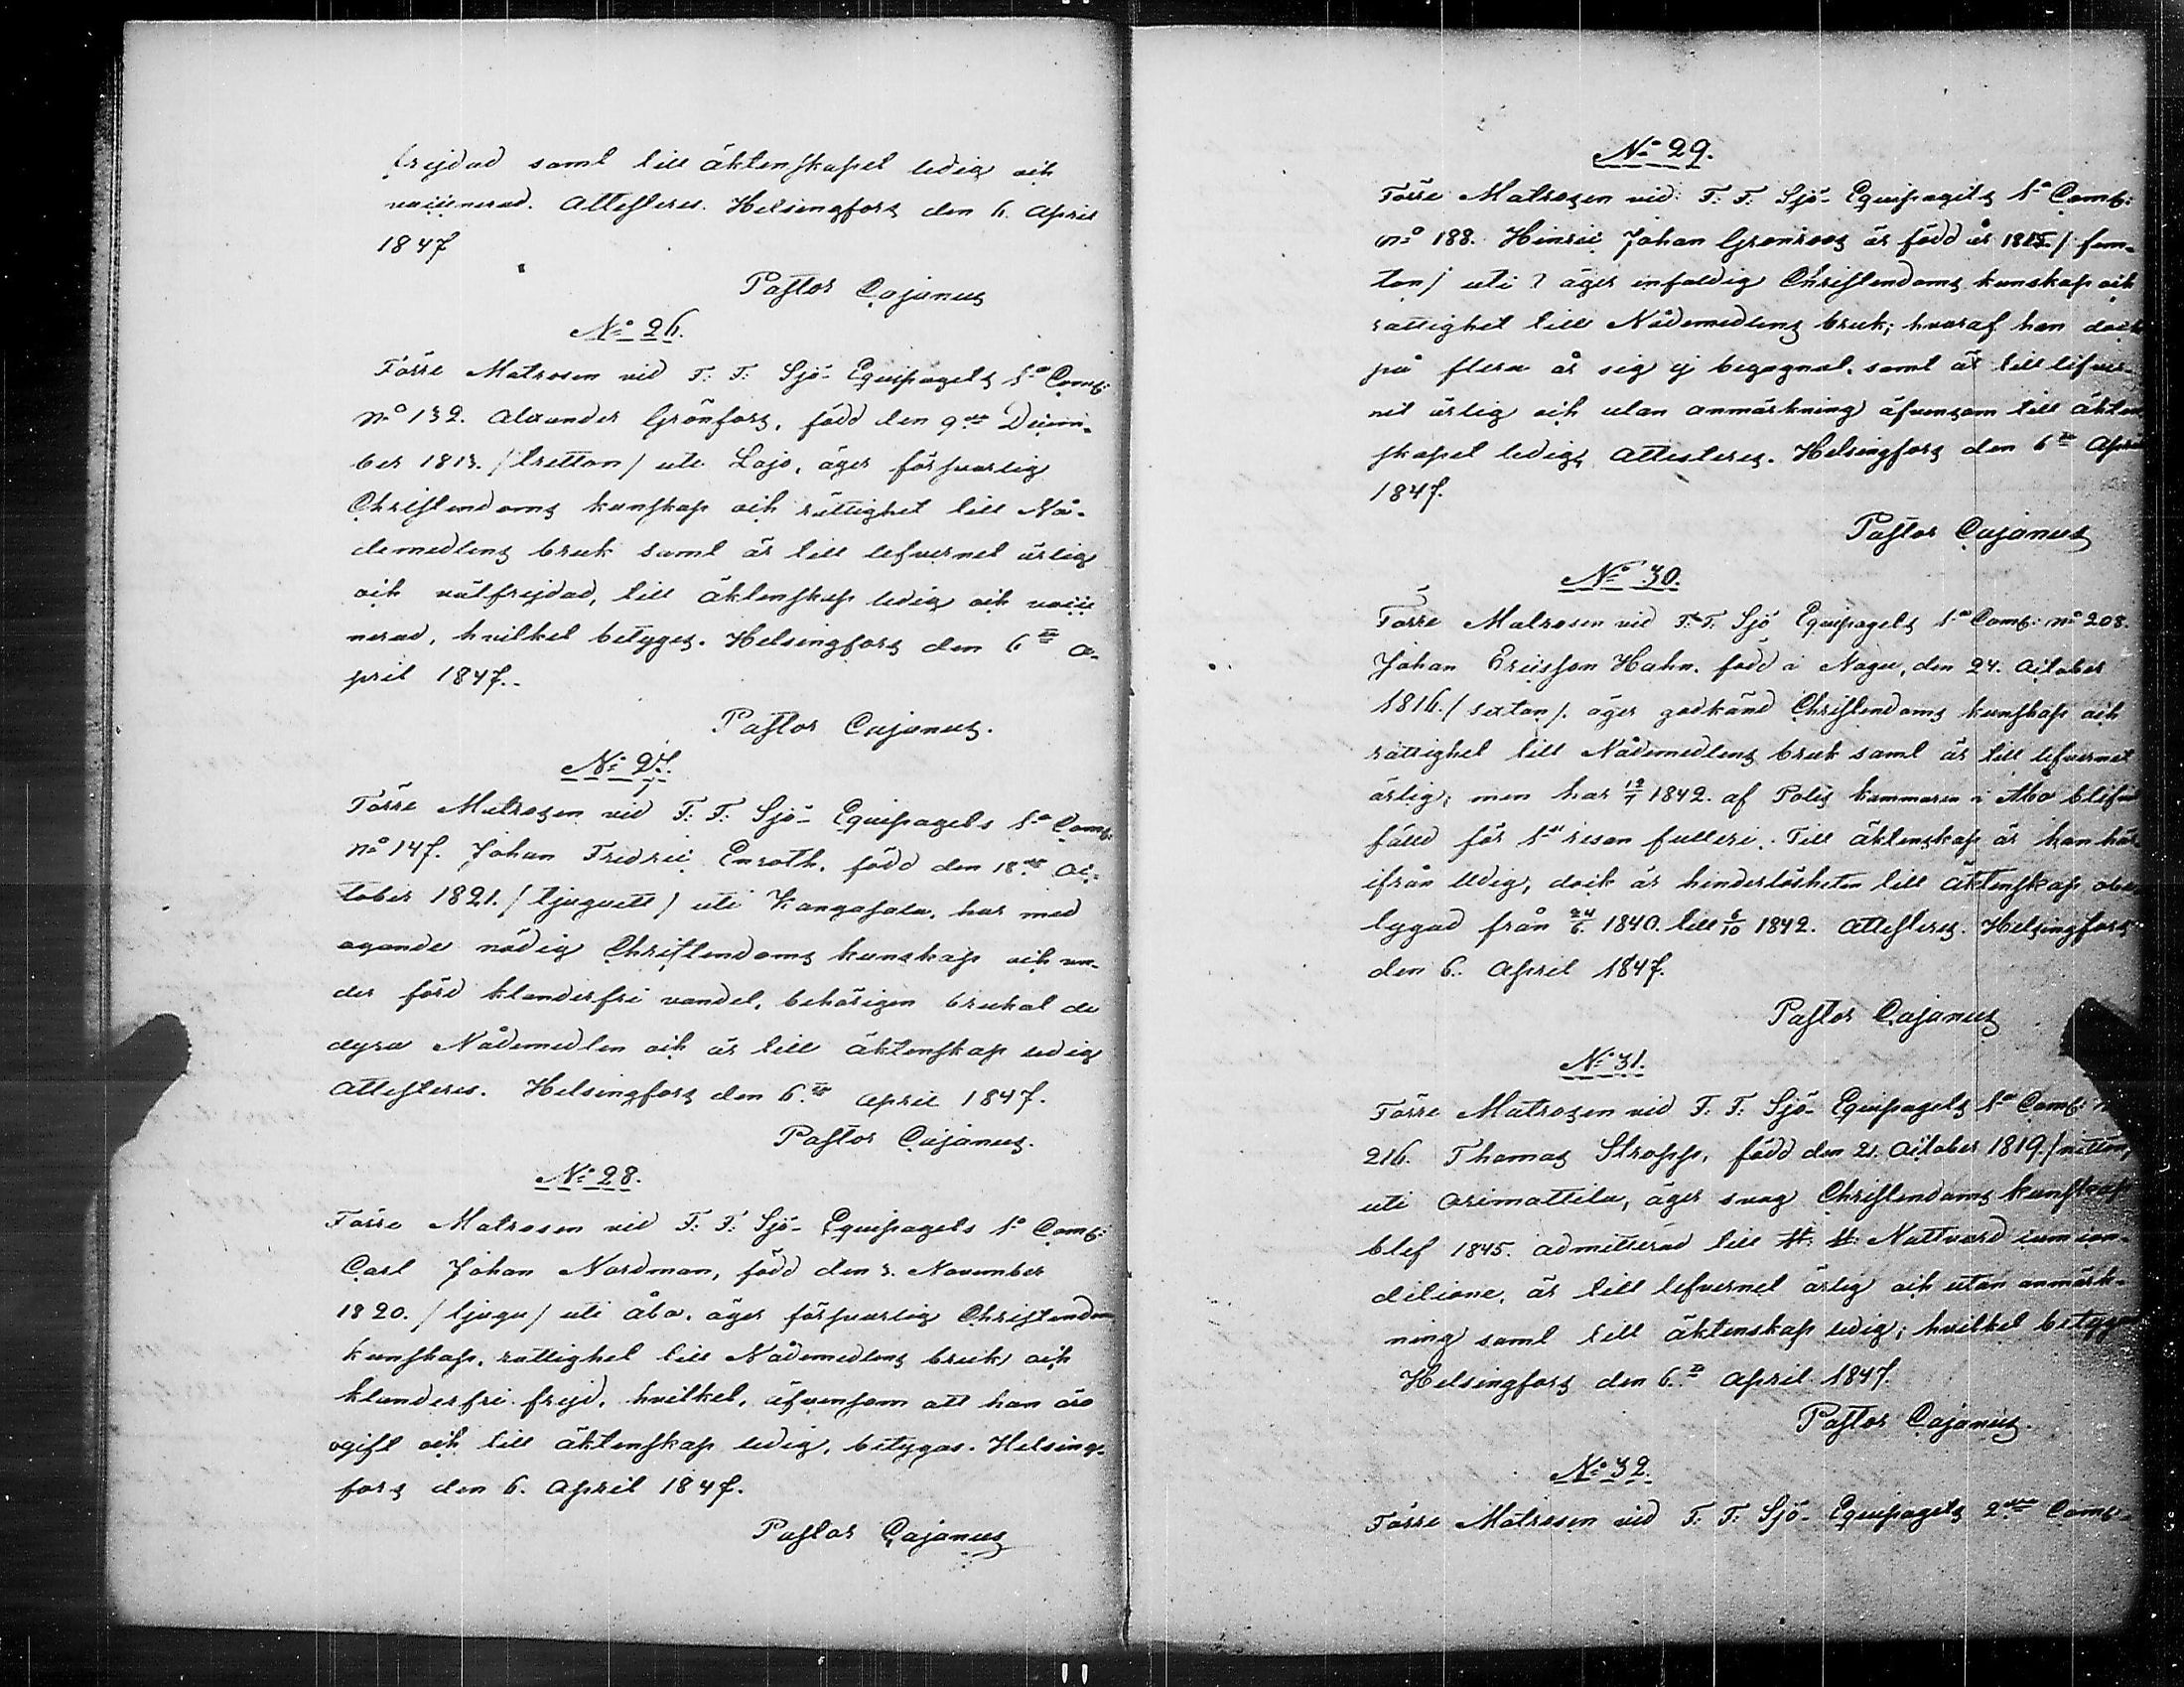 frejdad samt till äktenskapet ledig och
vaccinerad. Attesteres. Helsingfors den 6. April
1847
Pastor Cajanus
No 26.
Förre Matrosen vid F. F. Sjö-Equipagets 1a Comp:
No 132. Alexander Grönfors, född den 9de Decem-
ber 1813. /tretton/ uti Lojo, äger försvarlig
Christendoms kunskap och rättighet till Nå-
demedlens bruk samt är till lefvernet ärlig
och välfrejdad, till äktenskap ledig och vacci
nerad, hvilket betyges. Helsingfors den 6te A-
pril 1847.-
Pastor Cajanus.
No 27.
Förre Matrosen vid F. F. Sjö-Equipagets 1a Comp:
No 147. Johan Fredric Enroth, född den 18de Oc-
tober 1821. /tjuguett/ uti Kangasala, har med
agande nödig Christendoms kunskap och un-
der förd klanderfri vandel, behörigen brukat de
dyra Nådemedlen och är till äktenskap ledig
Attesteres. Helsingfors den 6te April 1847.
Pastor Cajanus.
No 28.
Förre Matrosen vid F. F. Sjö-Equipagets 1a Comp:
Carl Johan Nordman, född den 3. November
1820. /tjugu/ uti Åbo. äger försvarlig Christendom
kunskap, rättighet till Nådemedlens bruk och
klanderfri frejd, hvilket, äfvensom att han är
ogift och till äktenskap ledig, betygas. Helsing-
fors den 6. April 1847.
Pastor Cajanus
No 29.
Förre Matrosen vid F. F. Sjö-Equipagets 1a Comp:
No 188. Hinric Johan Grönroos är född år 1815 /fem-
ton/ uti ? äger enfaldig Christendoms kunskap och
rättighet till Nådemedlens bruk; hvaraf han dock
på flera år sig ej begagnat, samt är till lefver-
net ärlig och utan anmärkning äfvensom till äkten
skapet ledig, Attesteres. Helsingfors den 6te April
1847.
Pastor Cajanus
No 30.
Förre Matrosen vid F. F. Sjö Equipagets 1a Comp: No 208.
Johan Ericsson Hahn. född i Nagu, den 24. October
1816. /sexton/. äger godkänd Christendoms kunskap och
rättighet till Nådemedlens bruk samt är till lefvernet
ärlig; men har 12/7 1842. af Polis kammaren i Åbo blifvit
fälld för 1a resan fylleri. Till äktenskap är han här
ifrån ledig, dock är hinderlösheten till äktenskap obe
tygad från 24/6 1840. till 6/10 1842. Attesteres. Helsingfors
den 6. April 1847.
Pastor Cajanus
No 31.
Förre Matrosen vid F. F. Sjö-Equipagets 1a Comp: N
216. Thomas Stropp, född den 21. October 1819. /nitton/
uti Orimattila, äger svag Christendoms kunskap
blef 1845. admitterad till H. H. Nattvard cum con-
ditione, är till lefvernet ärlig och utan anmärk-
ning samt till äktenskap ledig; hvilket betyges
Helsingfors den 6te April 1847.
Pastor Cajanus.
No 32.
Förre Matrosen vid F. F. Sjö-Equipagets 2dra Comp: